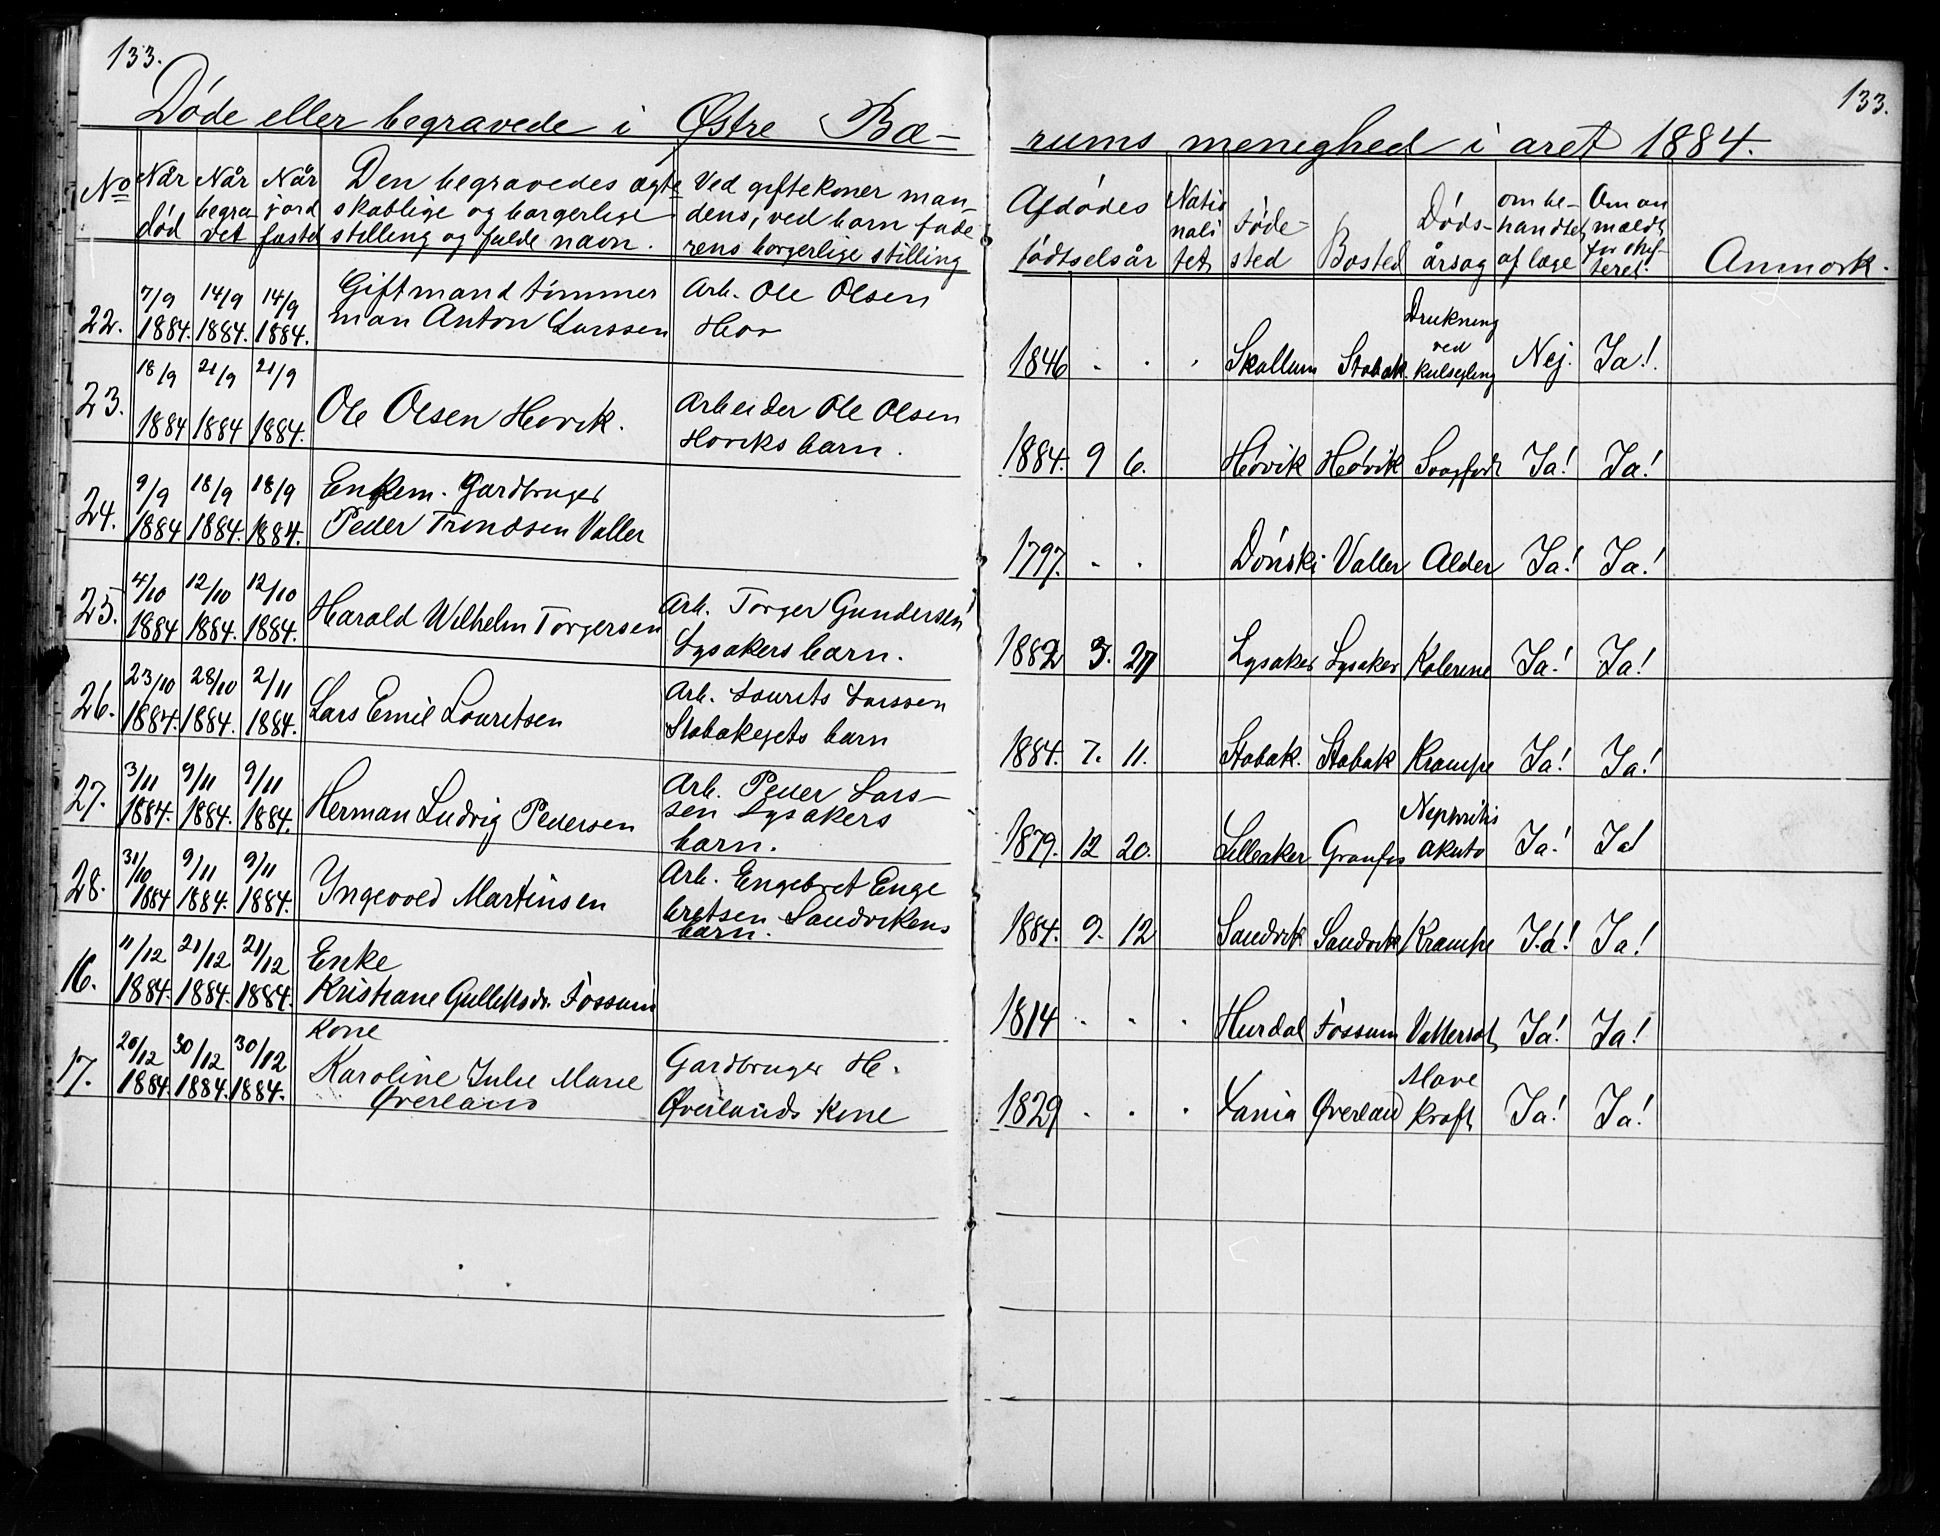 133.
133.
Døde eller begravede i Østre Bæ-
rums menighed i aret 1884.
No
Når død
Når begra- vet
Når jord fæstet
Den begravedes ægte- skablige og borgerlige stilling og fulde navn.
Ved giftekoner man- dens, ved barn fade rens borgerlige stilling
Afdødes fødtselsår
Natio nali tet
Føde- sted
Bosted
Døds- årsag
om be- handtet af læge
Om an mældt for skif- teret.
Anmærk.
22.
7/9 1884.
14/9 1884.
14/9 1884.
Gift mand tømmer
man Anton Larssen
Arb. Ole Olsen
1846 . . .
Skallum
Stabæk.
Drukning
ved
kulsejling
Nej.
Ja!
23.
18/9 1884
21/9 1884
21/9 1884.
Ole Olsen Høvik.
Arbeider Ole Olsen
Høviks barn.
1884. 9 6.
Høvik
Høvik
Ja!
Ja!
24.
9/9 1884
18/9 1884.
18/9 1884.
Enkem. Gardbruger
Peder Trondsen Valler
1797. . .
Dønski
Valler
Alder
Ja!
Ja!
25.
4/10 1884
12/10 1884.
12/10 1884.
Harald Wilhelm Torgersen
Arb. Torger Gundersen
Lysakers barn.
1882 3. 27
Lysaker
Lysaker
Kolerine
Ja!
Ja!
26.
23/10 1884.
28/10 1884.
2/11 1884.
Lars Emil Lauritsen
Arb. Laurits Larssen
Stabækejets barn
1884. 7. 11.
Stabæk.
Stabæk
Krampe
Ja!
Ja!
27.
3/11 1884.
9/11 1884.
9/11 1884.
Herman Ludvig Pedersen
Arb. Peder Lars-
sen Lysakers
barn.
1879. 12 20.
Lilleaker
Granfos
Nephritis
akuta
Ja!
Ja!
28.
31/10 1884
9/11 1884.
9/11 1884.
Yngvold Martinsen
Arb. Engebret Enge
bretsen Sandvikens
barn.
1884. 9. 12
Sandvik
Sandvik
Krampe
Ja!
Ja!
16.
11/12 1884.
21/12 1884.
21/12 1884.
Enke
Kristiane Gulliksdr. Fossum
1814 . . .
Hurdal
Fossum
Vattersot
Ja!
Ja!
17.
20/12 1884.
30/12 1884.
30/12 1884.
Kone
Karoline Julie Marie
Øverland
Gardbruger H.
Øverlands kone
1829 . . .
Øverland
Mave
kræft
Ja!
Ja!